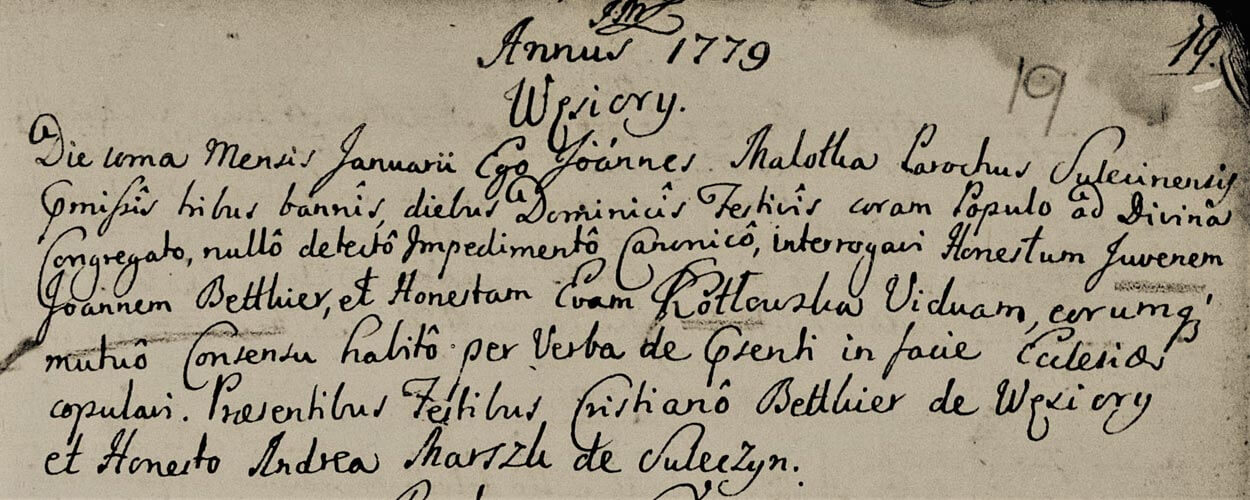 Annus 1779
19.
19
Węsiory.
Die Mensis Januarii Ego Joánnes Malotka Parochus Sulecinensis
Pmissîs tribus bannîs, diebus Dominicîs Festivîs coram Populo ad Divina
Congregato, nullô detectô Impedimentô Canonicô, interrogavi Honestum Juvenem
Joannem Bettkier, et Honestam Evam Kotłowska Viduam, eorumq́
mutuô Consensu habitô per Verba de Psenti in facie Ecclesiæ
copulavi. Præsentibus Testibus Cristianô Bettkier de Węsiory
et Honesto Andrea Marszk de Suleczyn.